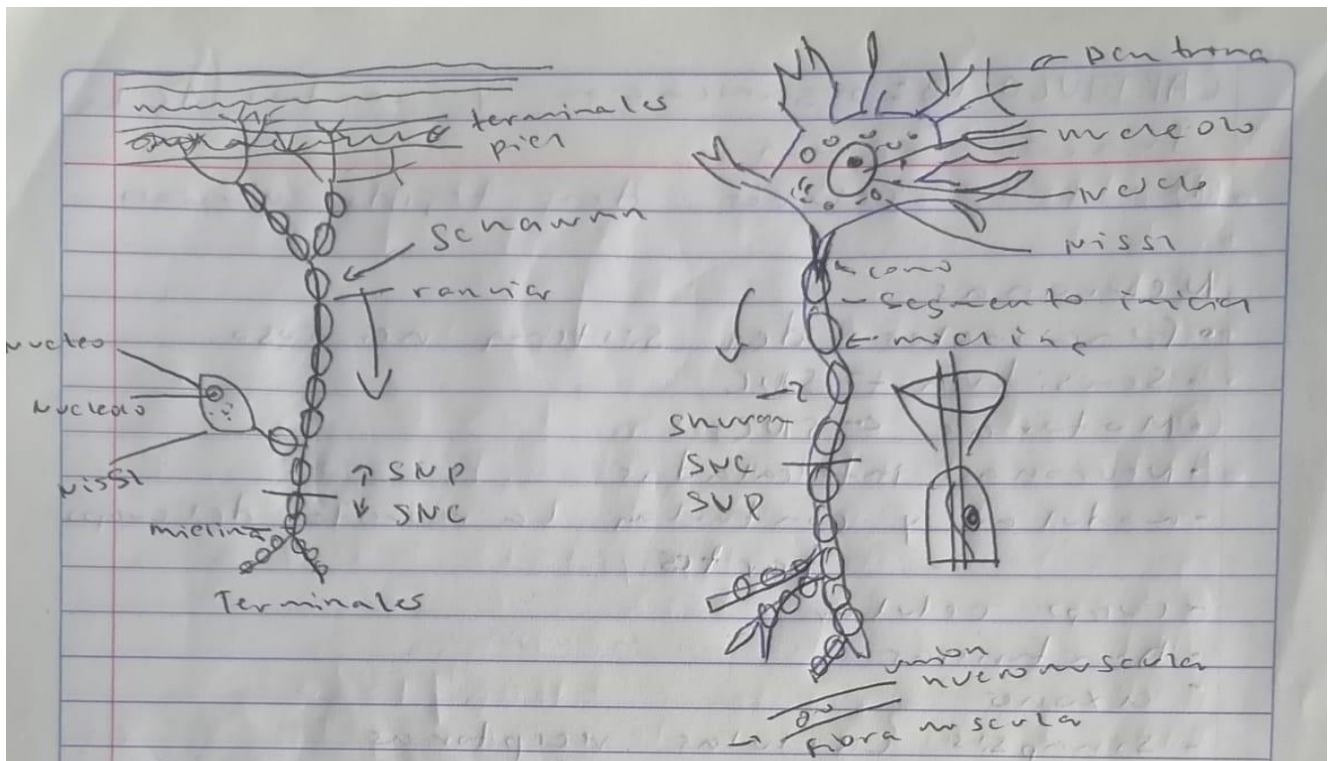 terminales
piel
schawnn
ranvier
Nucleo
Nucleolo
Nissl
↑ SNP
↓ SNC
mielina
Terminales
nucleolo
Nissl
cono
segmento inicial
SNC
SNP
union
nuero muscula
fibra muscula